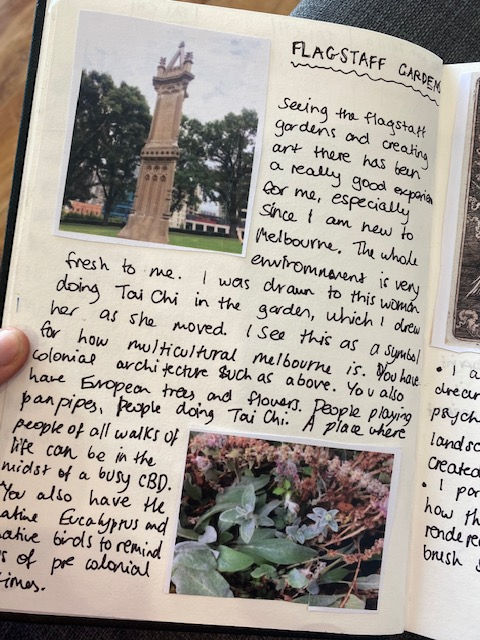 FLAGSTAFF GARDENS
Seeing the flagstaff
gardens and creating
art there has been
a really good experien
for me, especially
since I am new to
Melbourne. The whole
environmnent is very
fresh to me. I was drawn to this woman
doing Tai Chi in the garden, which I drew
her as she moved. I see this as a symbol
for how multicultural melbourne is. You have
colonial architecture such as above. You also
have European trees and flowers. People playing
pan pipes, people doing Tai Chi. A place where
people of all walks of
life can be in the
midst of a busy CBD.
You also have the
native Eucalyptus and
native birds to remind
us of pre colonial
times.
• I a
drea
psych
landsc
created
• I
how th
rendere
brush s